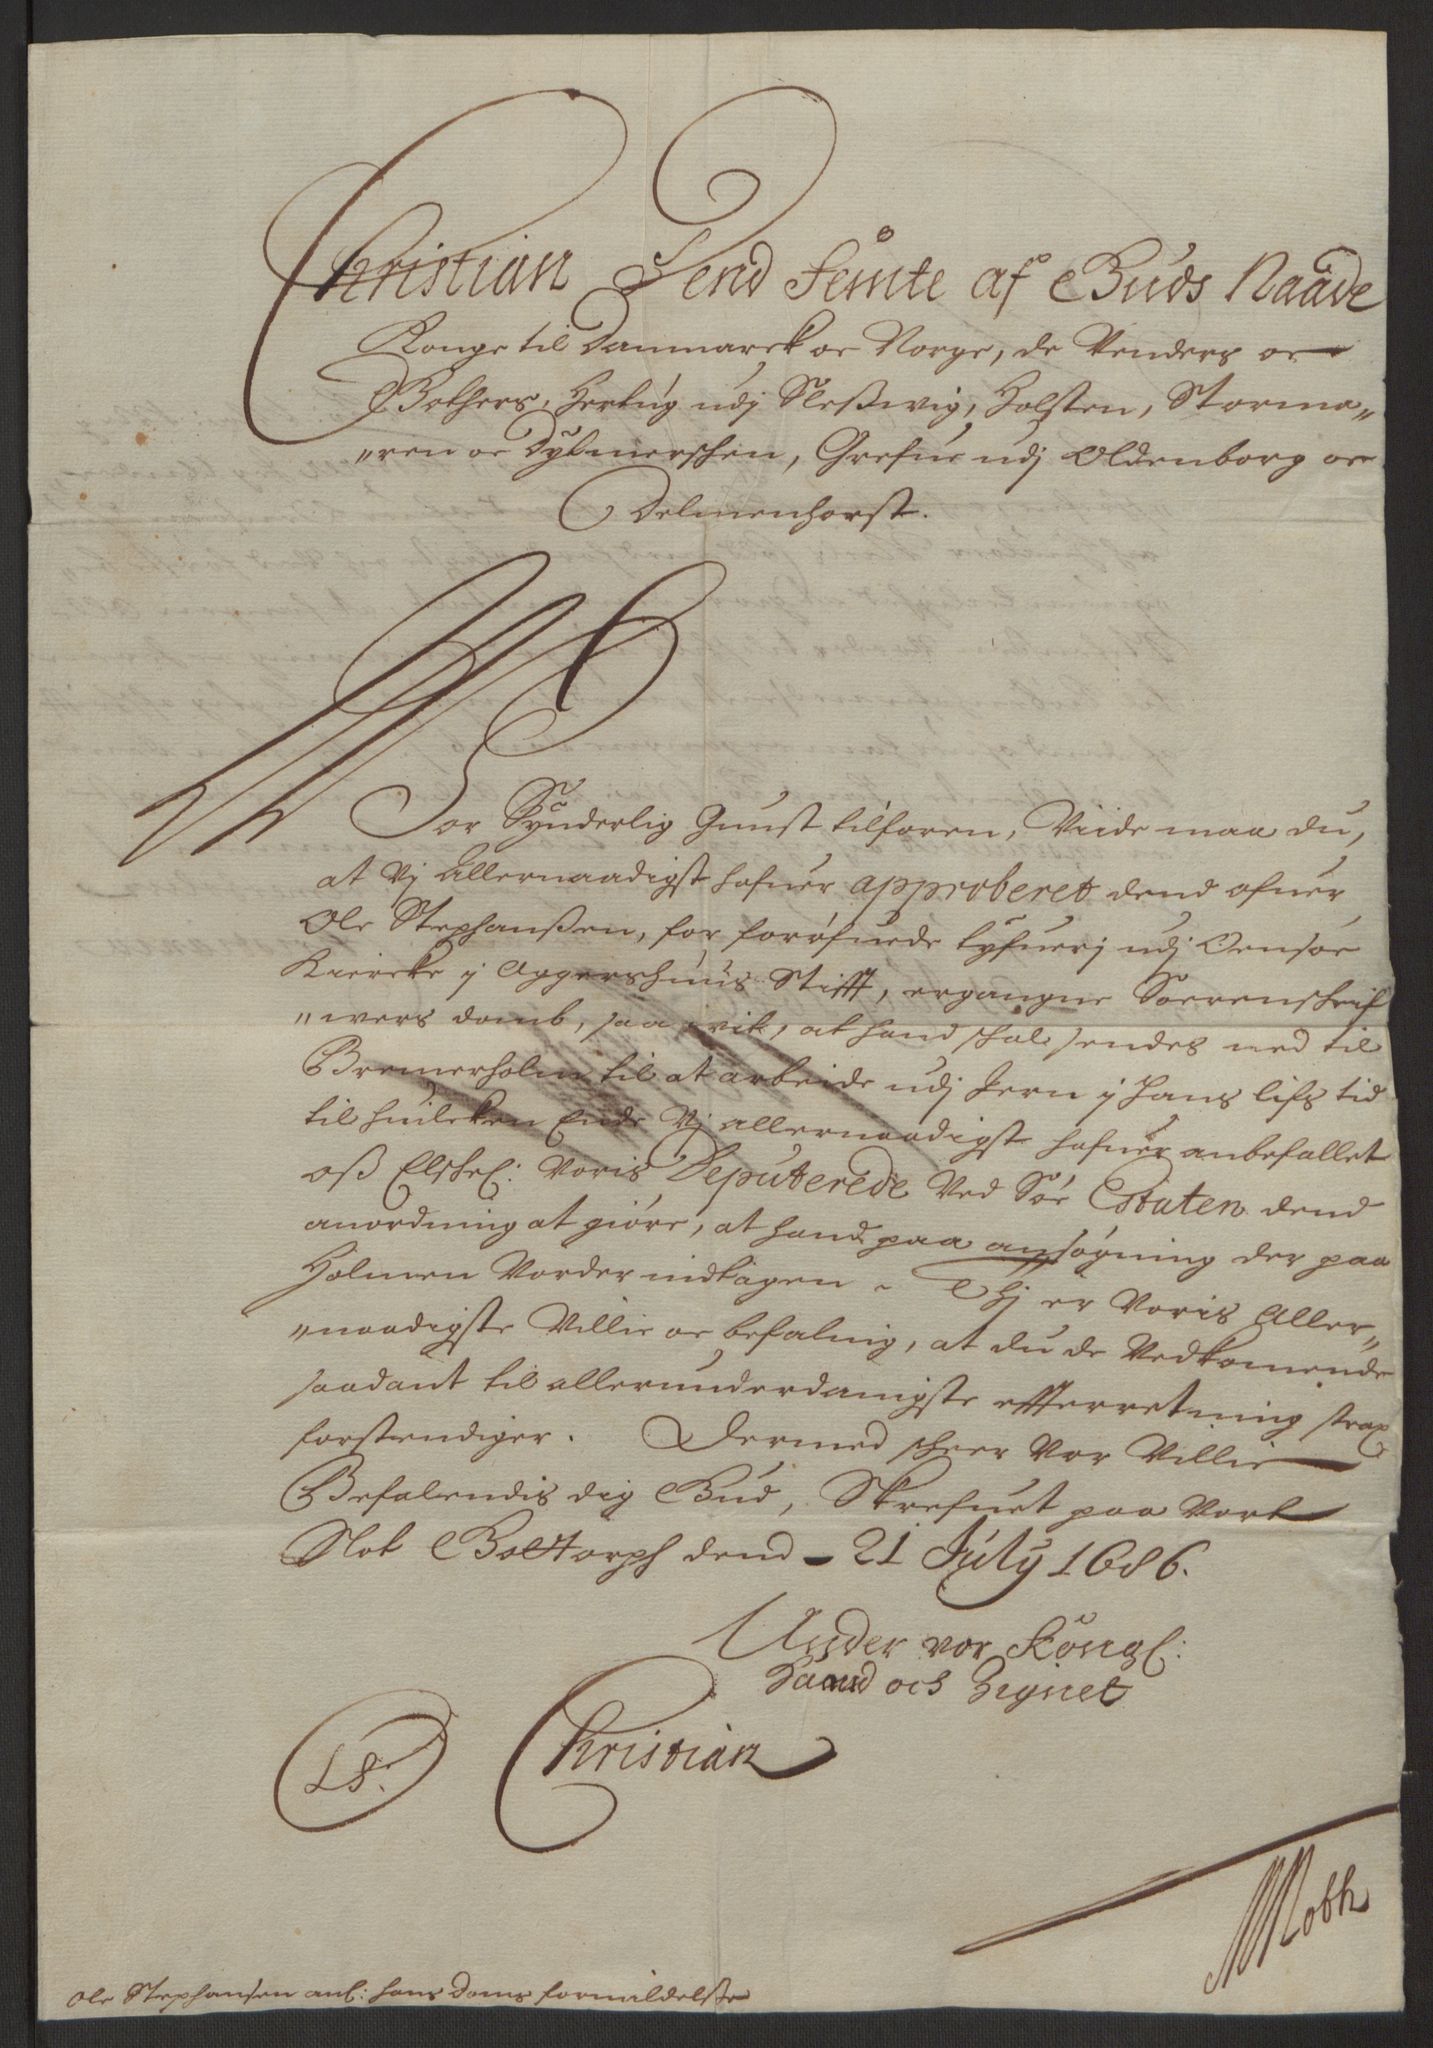 Christian Dend Femte af Guds Naade
Konge til Danmarck oc Norge, de Venders oc
Gothers, Hertug udj Sleßwig, Holsten, Storma„
„ren oc Dytmerschen, Grefue udj Oldenborg oc
Delmenhorst.
Vor Synderlig Gunst tilforen, Viide maa du,
at Vj Allernaadigst hafuer approberet dend ofuer
Ole Stephanßen, for forøfuede tyfuerj udj Oensøe
Kiercke j Aggershuus Stifft, ergangne Soerenschrif
„wers domb, saa vit, at hand schal sendes ned til
Bremerholm til at arbeide udj Jern j hans lifs tid
til huilcken Ende Vj allernaadigst hafuer anbefallet
oß Elschel: Voris Deputerede Ved Söe Estaten dend
anordning at giöre, at hand paa ansögning der paa
Holmen Vorder indtagen - Thj er Voris Aller„
„naadigste Villie oc befaling, at du de Vedkomende
saadant til allerunderdanigste efterretning strax
forstendiger. Dermed scheer Vor Villie
Befalendis dig Gud, Skrefuet paa Vort
Slot Gottorph dend - 21 July 1686.
Under vor Köngl:
Haand och Zignet
LS. Christian
MMoth
Ole Stephansen anl: hans Doms formildelse